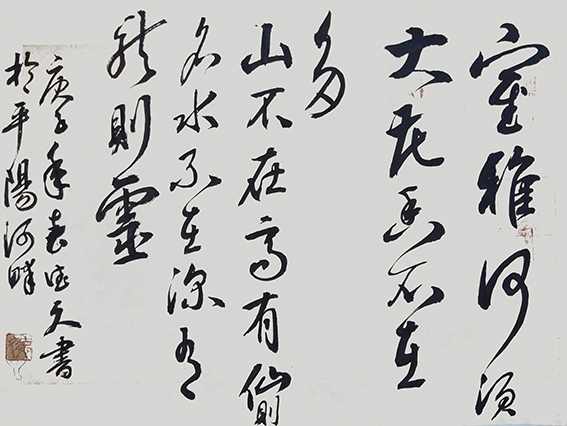 室雅何須
大花香不在
多
山不在高有仙則
名水不在深有
龍則靈
庚子年春德文書
於平陽河畔